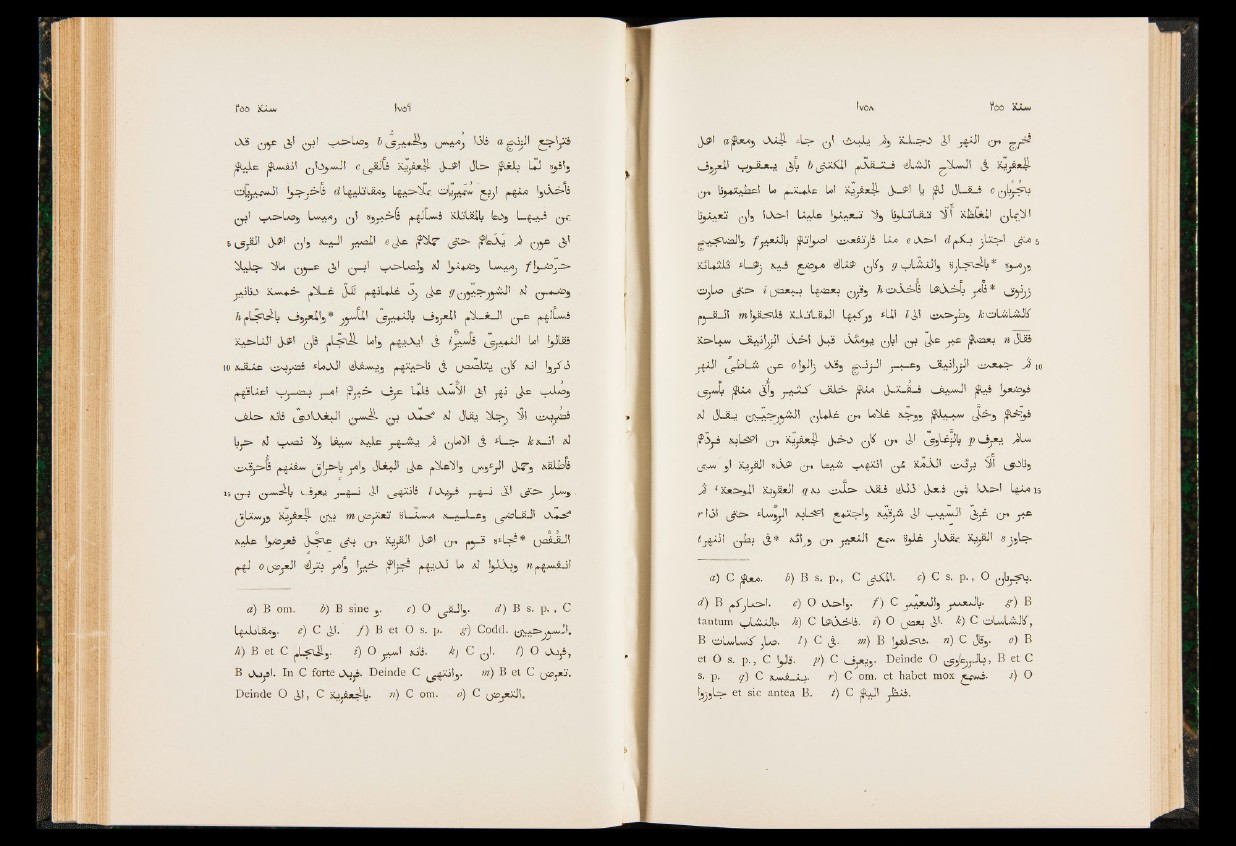 سنة ٢٥٥ ١٧٥٨
فخرج من النهر الى دجلة ولم يلبث ان جاء الجند ومعهم a اهل
الجعفريّة فى السلاح الشاك فتقدّم المكتنى b بأبى يعقوب المعروف
بجُرْبان c فقال لهم يا اهل الجعفريّة اما علمتم ما اعطيتمونا من
الايمان المغلظة ألّا تقاتلونا ولا تعينوا علينا احدا وان تعينونا
5 متى اجتاز بكم d احد e منا فارتفعت اصواتهم بالنعير f والضجيج
ورموه *بالحجارة والنشّاب g وكان هناك موضع فيه زهاء ثلثمائة
زرنوق *فأمر بأخذها فأخذت h وقرن بعضها ببعض i حتى صارت
كالشاشات k وطرحت الى l الماء وركبها المقاتلة فلحقوا m القوم
فقال n بعضهم عبر على بن ابان يومئذ قبل اخذ الزرانيق سباحة
10 ثم جمعت الزرانيق وعبر الزنج وقد زالوا o عن شاطئ النهر
فوضعوا فيهم السيف فقتل منهم خلق كثير وأتى منهم بأسرى
فوبّخهم وخلّى سبيلهم ووجّه غلاما من غلمان الشورجيّين يقال له
سالم يعرف p بالزغاوىّ الى من كان دخل الجعفريّة من اصحابه فردّهم
ونادى ألا برئت الذمّة ممّن انتهب شيئا من هذه القرية او سبى
15 منها احدا فمن فعل ذلك فقد حلّت به q العقوبة الموجعة، ثم
عبر من غربىّ السيب الى شرقيّه واجتمع اصحابه الرؤساء حتى اذا r
جاوز s القرية بمقدار غلوة سمع النعير من ورائه *فى بطن النهر t
a) C معهم. b) B s. p., C المكنى. c) C s. p., O بنجربان.
d) B اجتازكم. e) O واحد. f) C والنعير. g) B
tantum بالنشاب. h) C فاخذها. i) O بعض الى. k) C كالشاشات,
B صار كساسات. l) C فى. m) B فتخلفوا. n) C وقال. o) B
et O s. p., C قالوا. p) C ويعرف. Deinde O, B et C
s. p. q) C بنفسه. r) C om. et habet mox فسمع. s) O
جاوزوا et sic antea B. t) C فنظر اليهم.
١٧٥٩ سنة ٢٥٥
فتراجع الزنج a فاذا رُميس والحميرىّ b وصاحب ابن ابى عون قد
وافوه لمّا بلغهم حال اهل الجعفريّة فألقى c السودان انفسهم عليهم
فأخذوا منهم اربع سُمَيريّات بملّاحيها ومقاتلتها d فأخرجوا السميريّات
بمن فيها ودعا بالمقاتلة فسألهم فأخبروه ان رميسا وصاحب ابن
5 ابى عون لم يدعاهم حتى حملاهم على e المصير اليه وان اهل القرى
حرّضوا f رميسا وضمنوا له ولصاحب ابن ابى عون مالا جليلا
وضمن له الشورجيّون g على ردّ غلمانهم لكلّ غلام خمسة دنانير
فسألهم عن الغلام المعروف بالنميرىّ المأسور *والمعروف بالحجّام h
فقالوا اما النميرىّ فأسير i فى ايديهم واما الحجّام فان اهل الناحية
10 ذكروا انه كان يتلصّص فى ناحيتهم ويسفك الدماء فضربت عنقه
وصُلب على نهر ابى الأسد فلما عرف خبرهم امر بضرب اعناقهم
فضُربت الّا رجلا يقال له محمّد بن الحسن البغدادىّ فانه حلف
له انه k جاء فى الامان لم يشهر عليه سيفا ولا نصب له حربا
فأطلقه وحمل الرءوس والاعلام على البغال وامر باحراق سفنهم فأُحرقت
15 وسار حتى اتى نهر فريد l فانتهى الى نهر يعرف بالحسن بن
محمّد القاضى وعليه مسنّاة تعترض m بين الجعفريّة ورستاق
القُفْص *فجاءه قوم من اهل القرية من بنى عِجْل فعرضوا عليه
انفسهم n وبذلوا له ما لديهم فجزاهم خيرا وأمر بترك العرض o لهم
a) B om. b) B sine و. c) O والقى. d) B s. p., C
ومقاتلها. e) C الى. f) B et O s. p. g) Codd. السورجيين.
h) B et C والحجام. i) O فانه اسير. k) C ان. l) O فريد,
B افريد. In C forte فريد. Deinde C وانتهى. m) B et C تعرض.
Deinde O الى, C بالجعفرية. n) C om. o) C التعرض.